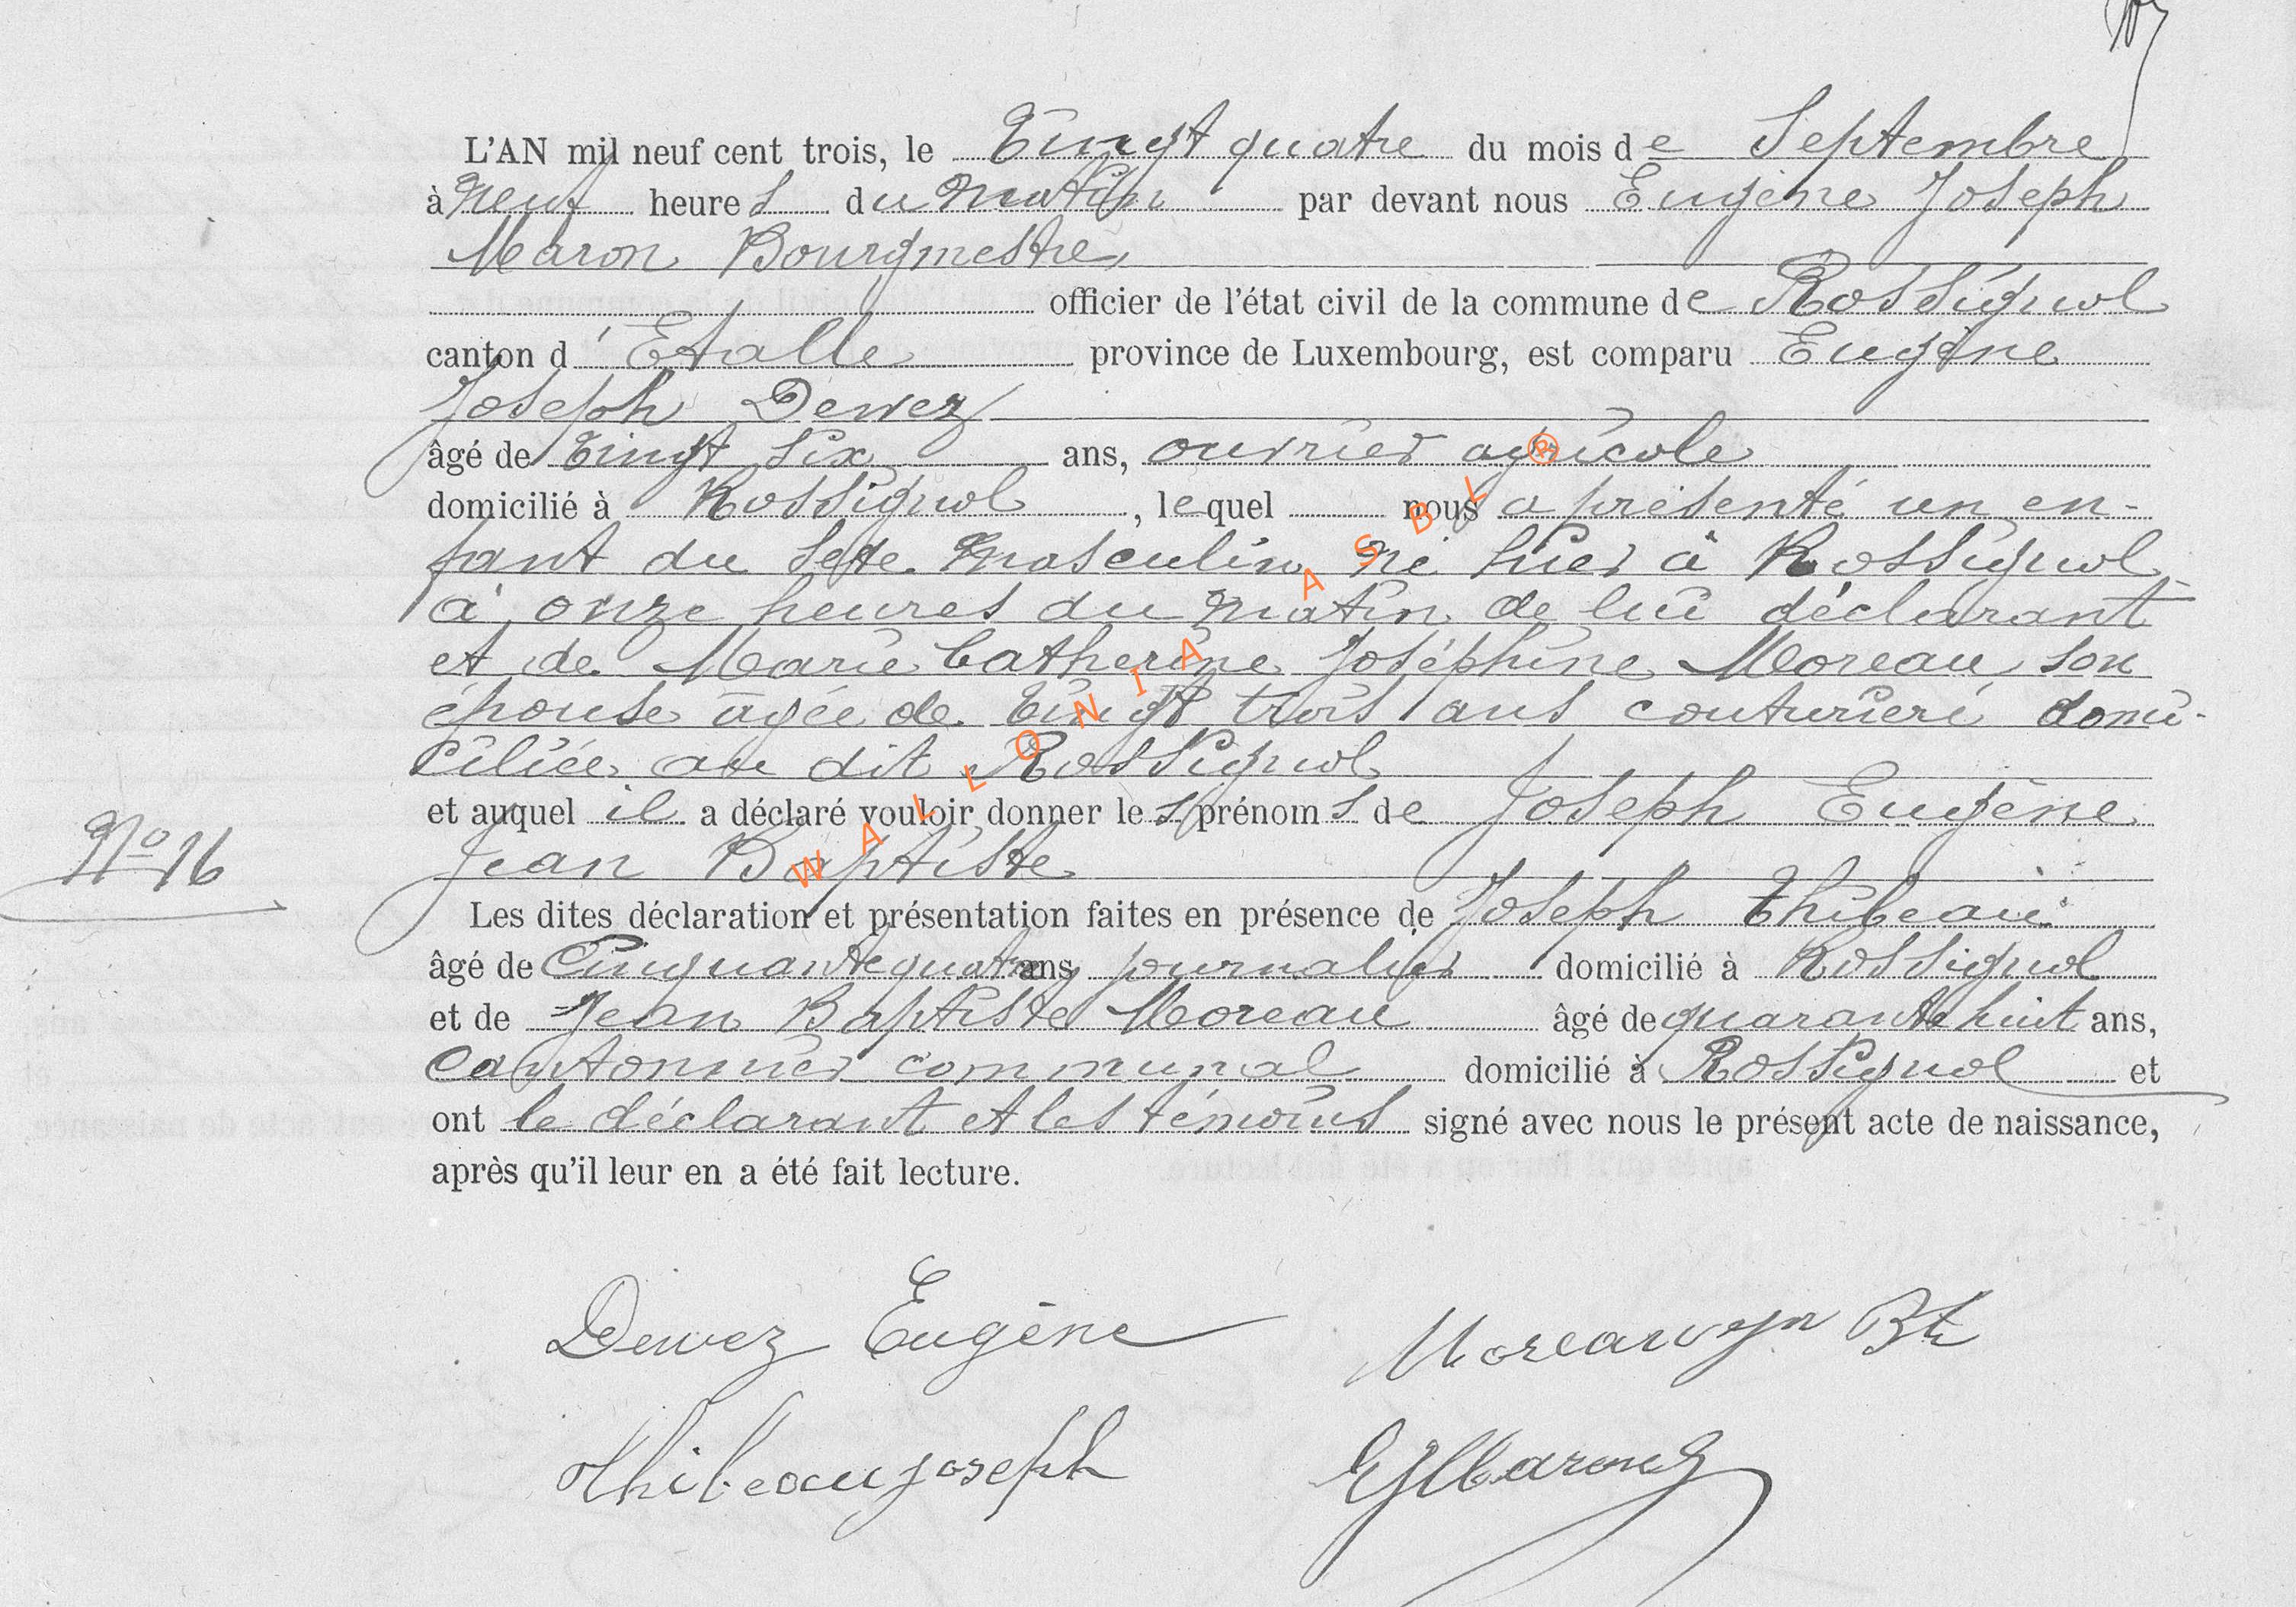 L'AN mil neuf cent trois, le Vingt quatre du mois de Septembre
à neuf heures du matin par devant nous Eugène Joseph
Maron Bourgmestre,
officier de l'état civil de la commune de Rossignol
canton d'Etalle province de Luxembourg, est comparu Eugène
Joseph Dewez
âgé de Vingt six ans, ouvrier agricole
domicilié à Rossignol, lequel nous a présenté un en-
fant du sexe masculin né hier à Rossignol
à onze heures du matin de lui déclarant
et de Marie Catherine Joséphine Moreau son
épouse âgée de Vingt trois ans couturière domi-
ciliée au dit Rossignol
et auquel il a déclaré vouloir donner les prénoms de Joseph Eugène
Jean Baptiste
No 16
Les dites déclaration et présentation faites en présence de Joseph Thibeau
âgé de Cinquante quatre ans journalier domicilié à Rossignol
et de Jean Baptiste Moreau âgé de quarante huit ans,
cantonnier communal domicilié à Rossignol et
ont le déclarant et les témoins signé avec nous le présent acte de naissance,
après qu'il leur en a été fait lecture.
Dewez Eugène Moreau Jn Bte
Thibeau joseph EJMaron
WALLONIA ASBL ®